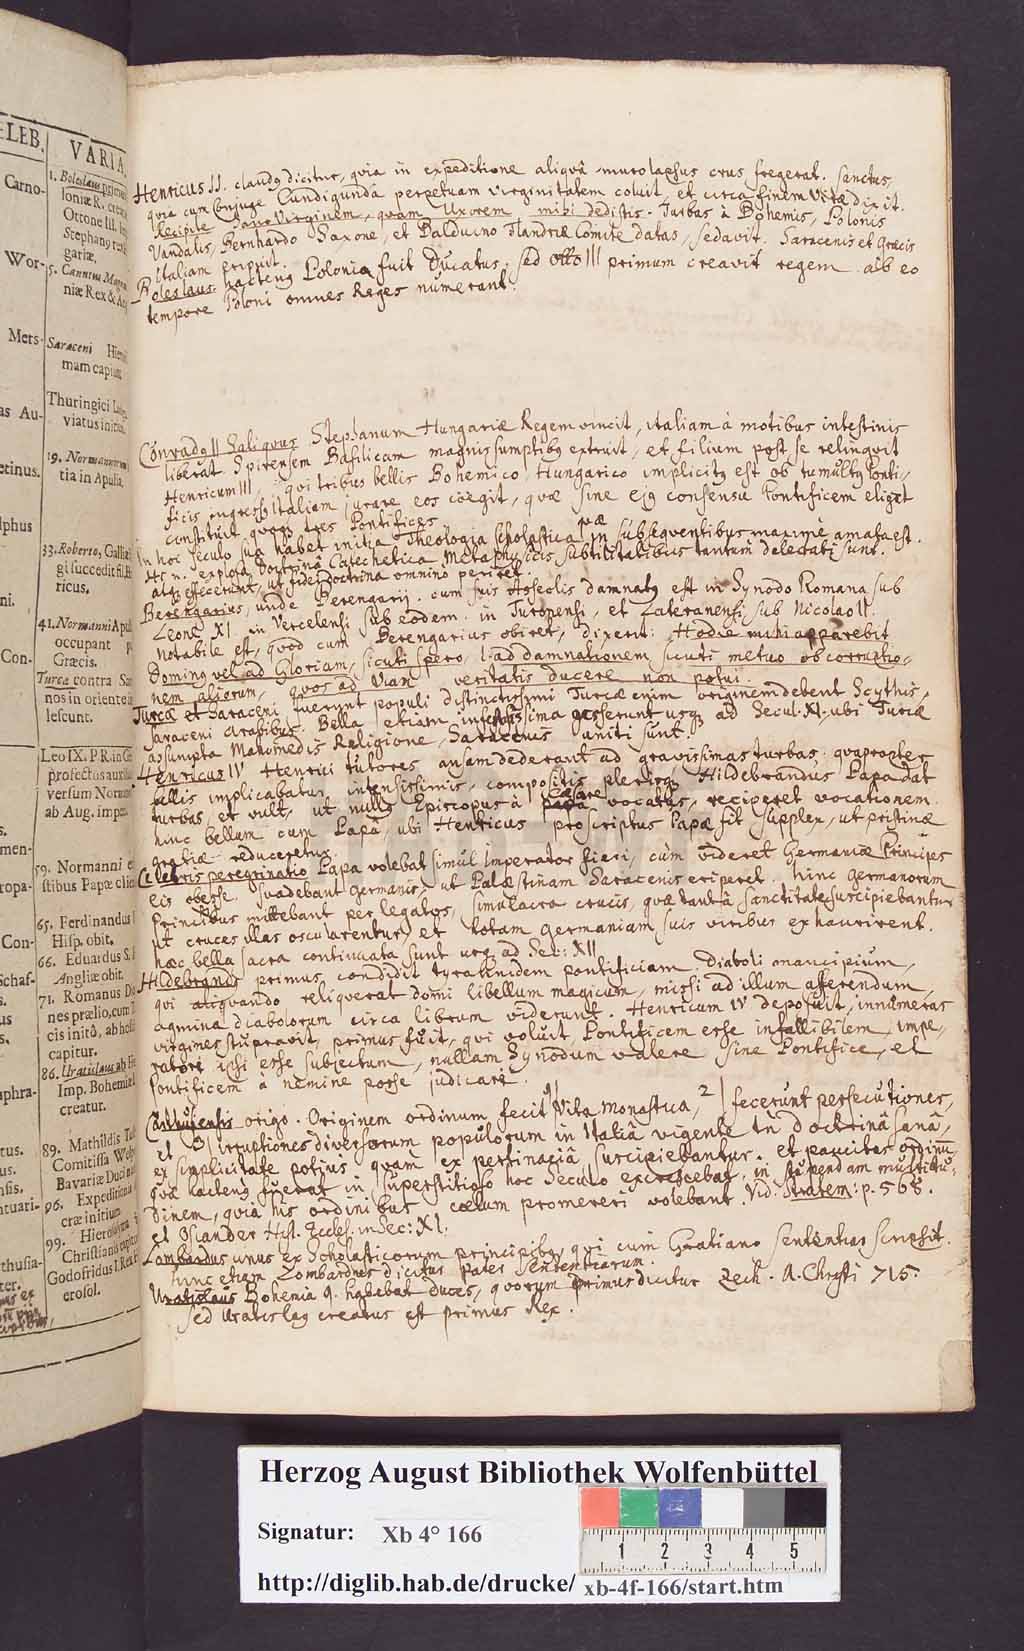 ELEB.
VARIA
Carno-
Wor-
Mets-
as Au-
etinus.
dolphus
ni.
Con-
men-
ropa-
Con-
Schaf-
us
s.
aphra-
tus.
us.
nsis.
ntuari-
thusia-
ter.
1. Boleslaus primus
loniæ R. creatus
Ottone III.
Stephanus
gariæ,
5. Canutus Magnus
niæ Rex &
Saraceni
mam capiunt
Thuringici
viatus initium
19. Normannorum
tia in Apulia.
33. Roberto, Galliæ
gi succedit fil.
ricus.
41. Normanni
occupant
Græcis.
Turcæ contra
nos in oriente
lescunt.
Leo IX. P. R. in
profectus auxilium
versum Norman
ab Aug. impet
59. Normanni
stibus Papæ clien
65. Ferdinandus
Hisp. obit.
66. Eduardus S.
Angliæ obit.
71. Romanus
nes prælio, cum
cis inito, ab
capitur.
86. Uratislaus ab
Imp. Bohemiæ
creatur.
89. Mathildis
Comitissa
Bavariæ Duci
96. Expeditionis
cræ initium
99. Hierosolyma
Christianis capitur
Godofridus I. Rex
erosol.
Henricus II. claudq dicitur, quia in expeditione aliquâ muro lapsus crus fregerat. Sanctus,
quia cum Conjuge Cundigunda perpetuam virginitatem coluit, et circa finem Vitæ dixit.
Recipite hanc Virginem, quam Uxorem mihi dedistis. Turbas à Bohemis, Polonis
Vandalis, Bernhardo Saxone, et Balduino Flandriæ Comite datas, sedavit. Saracenis et Græcis
italiam eripuit.
Boleslaus. hactenq Polonia fuit Ducatus, sed Otto III primum creavit regem. ab eo
tempore Poloni omnes Reges numerant.
Conradq II Saliquus Stephanum Hungariæ Regem vincit, italiam à motibus intestinis
liberat Spirensem Basilicam magnis sumptibq extruit, et filium post se relinquit
Henricum III, qui tribus bellis Bohemico, Hungarico implicitq est ob tumultq Ponti-
ficis ingressq Italiam, jurare eos coëgit, quæ sine ejq consensu Pontificem eliget
constituit quoque tres Pontifices
in hoc Seculo sua habet initia Theologia Scholastica, quæ in subsequentibus maximè amata est.
Hi n. explosa doctrina Catechetica Metaphysicis subtilitatibus tantum delectati sunt.
atq effecerunt, ut fidei doctrina omnino periret
Berengarius, unde Berengarii. cum suis Asseclis damnatq est in Synodo Romana sub
Leone XI. in Vercelensi sub eodem. in Turonensi, et Lateranensi, sub Nicolao II.
notabile est, quod cum Berengarius obiret, dixerit: Hodie mihi apparebit
Dominq vel ad Gloriam, sicuti spero, l. ad damnationem sicuti metuo ob corruptio-
nem aliorum, quos ad viam veritatis ducere non potui.
Turcæ et Saraceni, fuerunt populi distinctissimi Turcæ enim originem debent Scythis,
Saraceni Arabibus. Bella etiam infestissima gesserunt usq ad Secul. XI. ubi Turcæ
assumpta Mahomedis Religione, Saracenis uniti sunt.
Henricus IV Henrici tutores ansam dederant ad gravissimas turbas, quapropter
bellis implicabatur intensissimis, compositis plerisq, Hildebrandus Papa dat
turbas, et vult, ut nullq Episcopus à Cæsare vocatq, reciperet vocationem.
hinc bellum cum Papâ, ubi Henricus proscriptus Papæ fit supplex, ut pristinæ
gratiæ reduceretur.
Celebris peregrinatio Papa volebat simul Imperator fieri, cum videret Germaniæ Principes
eis obesse, svadebant Germanis, ut Palæstinam Saracenis eriperet. hinc Germanorum
Principibus mittebant per legatos, simulacra crucis, quæ tantâ sanctitate suscipiebantur
ut cruces illas oscularentur, et totam Germaniam suis viribus exhaurirent.
hæc bella sacra continuata sunt usq ad Sec: XII
Hildebrandq primus condidit tyrannidem pontificiam. Diaboli mancipium,
qui aliquando reliquerat domi libellum magicum, missi ad illum afferendum,
agmina diabolorum circa librum viderunt. Henricum IV deposuit, innumeras
virgines stupravit, primus fuit, qui voluit Pontificem esse infallibilem, impe-
ratore ipsi esse subjectum, nullam Synodum valere sine Pontifice, et
Pontificem à nemine posse judicari.
Carthusensis origo. Originem ordinum fecit 1) Vita monastica, 2) fecerunt persecutiones,
et 3) irruptiones diversorum populorum in Italiâ vigente in doctrinâ sanâ,
ex simplicitate potius quàm ex pertinaciâ suscipiebantur. et paucitas ordinum
quæ hactenq fuerat in superstitioso hoc Seculo excrescebat, in stupendam multitu-
dinem, quia his ordinibus coelum promereri volebant. Vid: Stratem: p. 568.
et Osiander Hist. Eccles. in Sec: XI.
Lombardus unus ex Scholasticorum principibq, qui cum Gratiano Sententias scripsit.
hinc etiam Lombardus dicitur pater Sententiarum.
Uratislaus Bohemia q. habebat duces, quorum primus dicitur Zech. A. Christi 715.
Sed Uratislaq creatus est primus Rex.
Herzog August Bibliothek Wolfenbüttel
Signatur: Xb 4° 166
1 2 3 4 5
http://diglib.hab.de/drucke/ xb-4f-166/start.htm